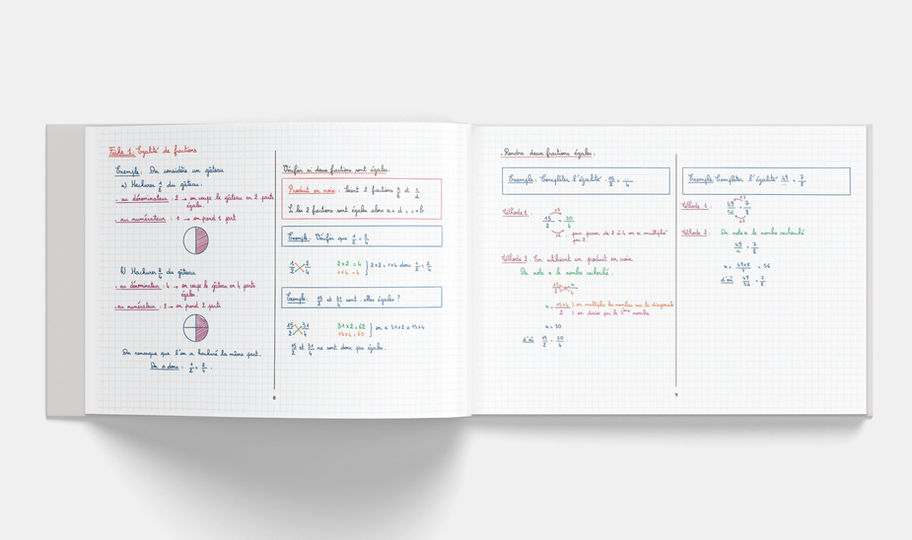 Fiche 1 : Egalité de fractions
Exemple : On considère un gâteau
a) Hachurer 1/2 du gâteau :
. au dénominateur : 2 → on coupe le gâteau en 2 parts
égales.
. au numérateur : 1 → on prend 1 part
b) Hachurer 2/4 du gâteau
. au dénominateur : 4 → on coupe le gâteau en 4 parts
égales
. au numérateur : 2 → on prend 2 parts
On remarque que l'on a hachuré la même part.
On a donc : 1/2 = 2/4 .
Vérifier si deux fractions sont égales :
Produit en croix : Soient 2 fractions a/b et c/d
Si les 2 fractions sont égales alors a × d = c × b
Exemple : Vérifier que 1/2 = 2/4
1/2 2/4
2 × 2 = 4
1 × 4 = 4
2 × 2 = 1 × 4 donc 1/2 = 2/4
Exemple : 15/2 et 31/4 sont-elles égales ?
15/2 31/4
31 × 2 = 62
15 × 4 = 60
on a 31 × 2 ≠ 15 × 4
15/2 et 31/4 ne sont donc pas égales.
8
. Rendre deux fractions égales .
Exemple : Compléter l'égalité : 15/2 = /4
Méthode 1 :
×2
15/2 = 30/4
×2 : pour passer de 2 à 4 on a multiplié
par 2.
Méthode 2 : En utilisant un produit en croix
On note x le nombre recherché.
15/2 x/4
x = 15×4/2 → on multiplie les nombres sur la diagonale
→ on divise par le 3ème nombre
x = 30
d'où 15/2 = 30/4
Exemple : Compléter l'égalité 49/ = 7/8
Méthode 1 :
49/56 = 7/8
Méthode 2 : On note x le nombre recherché
49/x = 7/8
x = 49×8/7 = 56
d'où 49/56 = 7/8
9